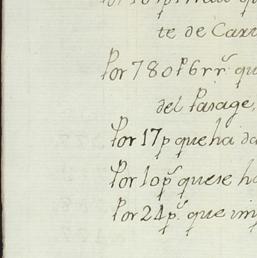 te de Car
Por 780p 6rr.ˢ qu
del Pasage,
Por 17p que ha da
Por 10p.ˢ que se ha
Por 24p.ˢ que im